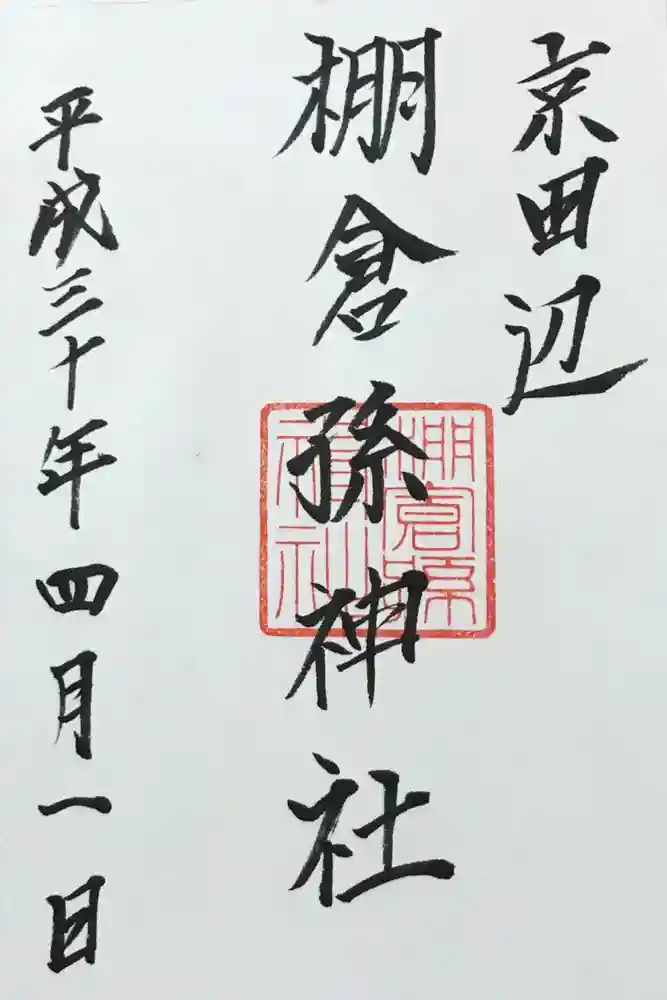 京田辺
棚倉孫神社
棚倉孫
神社
平成三十年四月一日